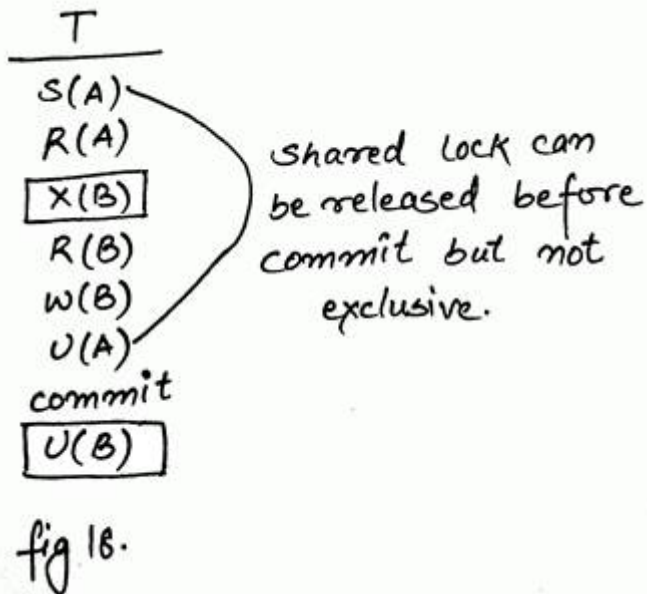 T
S(A)
R(A)
X(B)
R(B)
W(B)
U(A)
commit
U(B)
shared lock can
be released before
commit but not
exclusive.
fig 18.